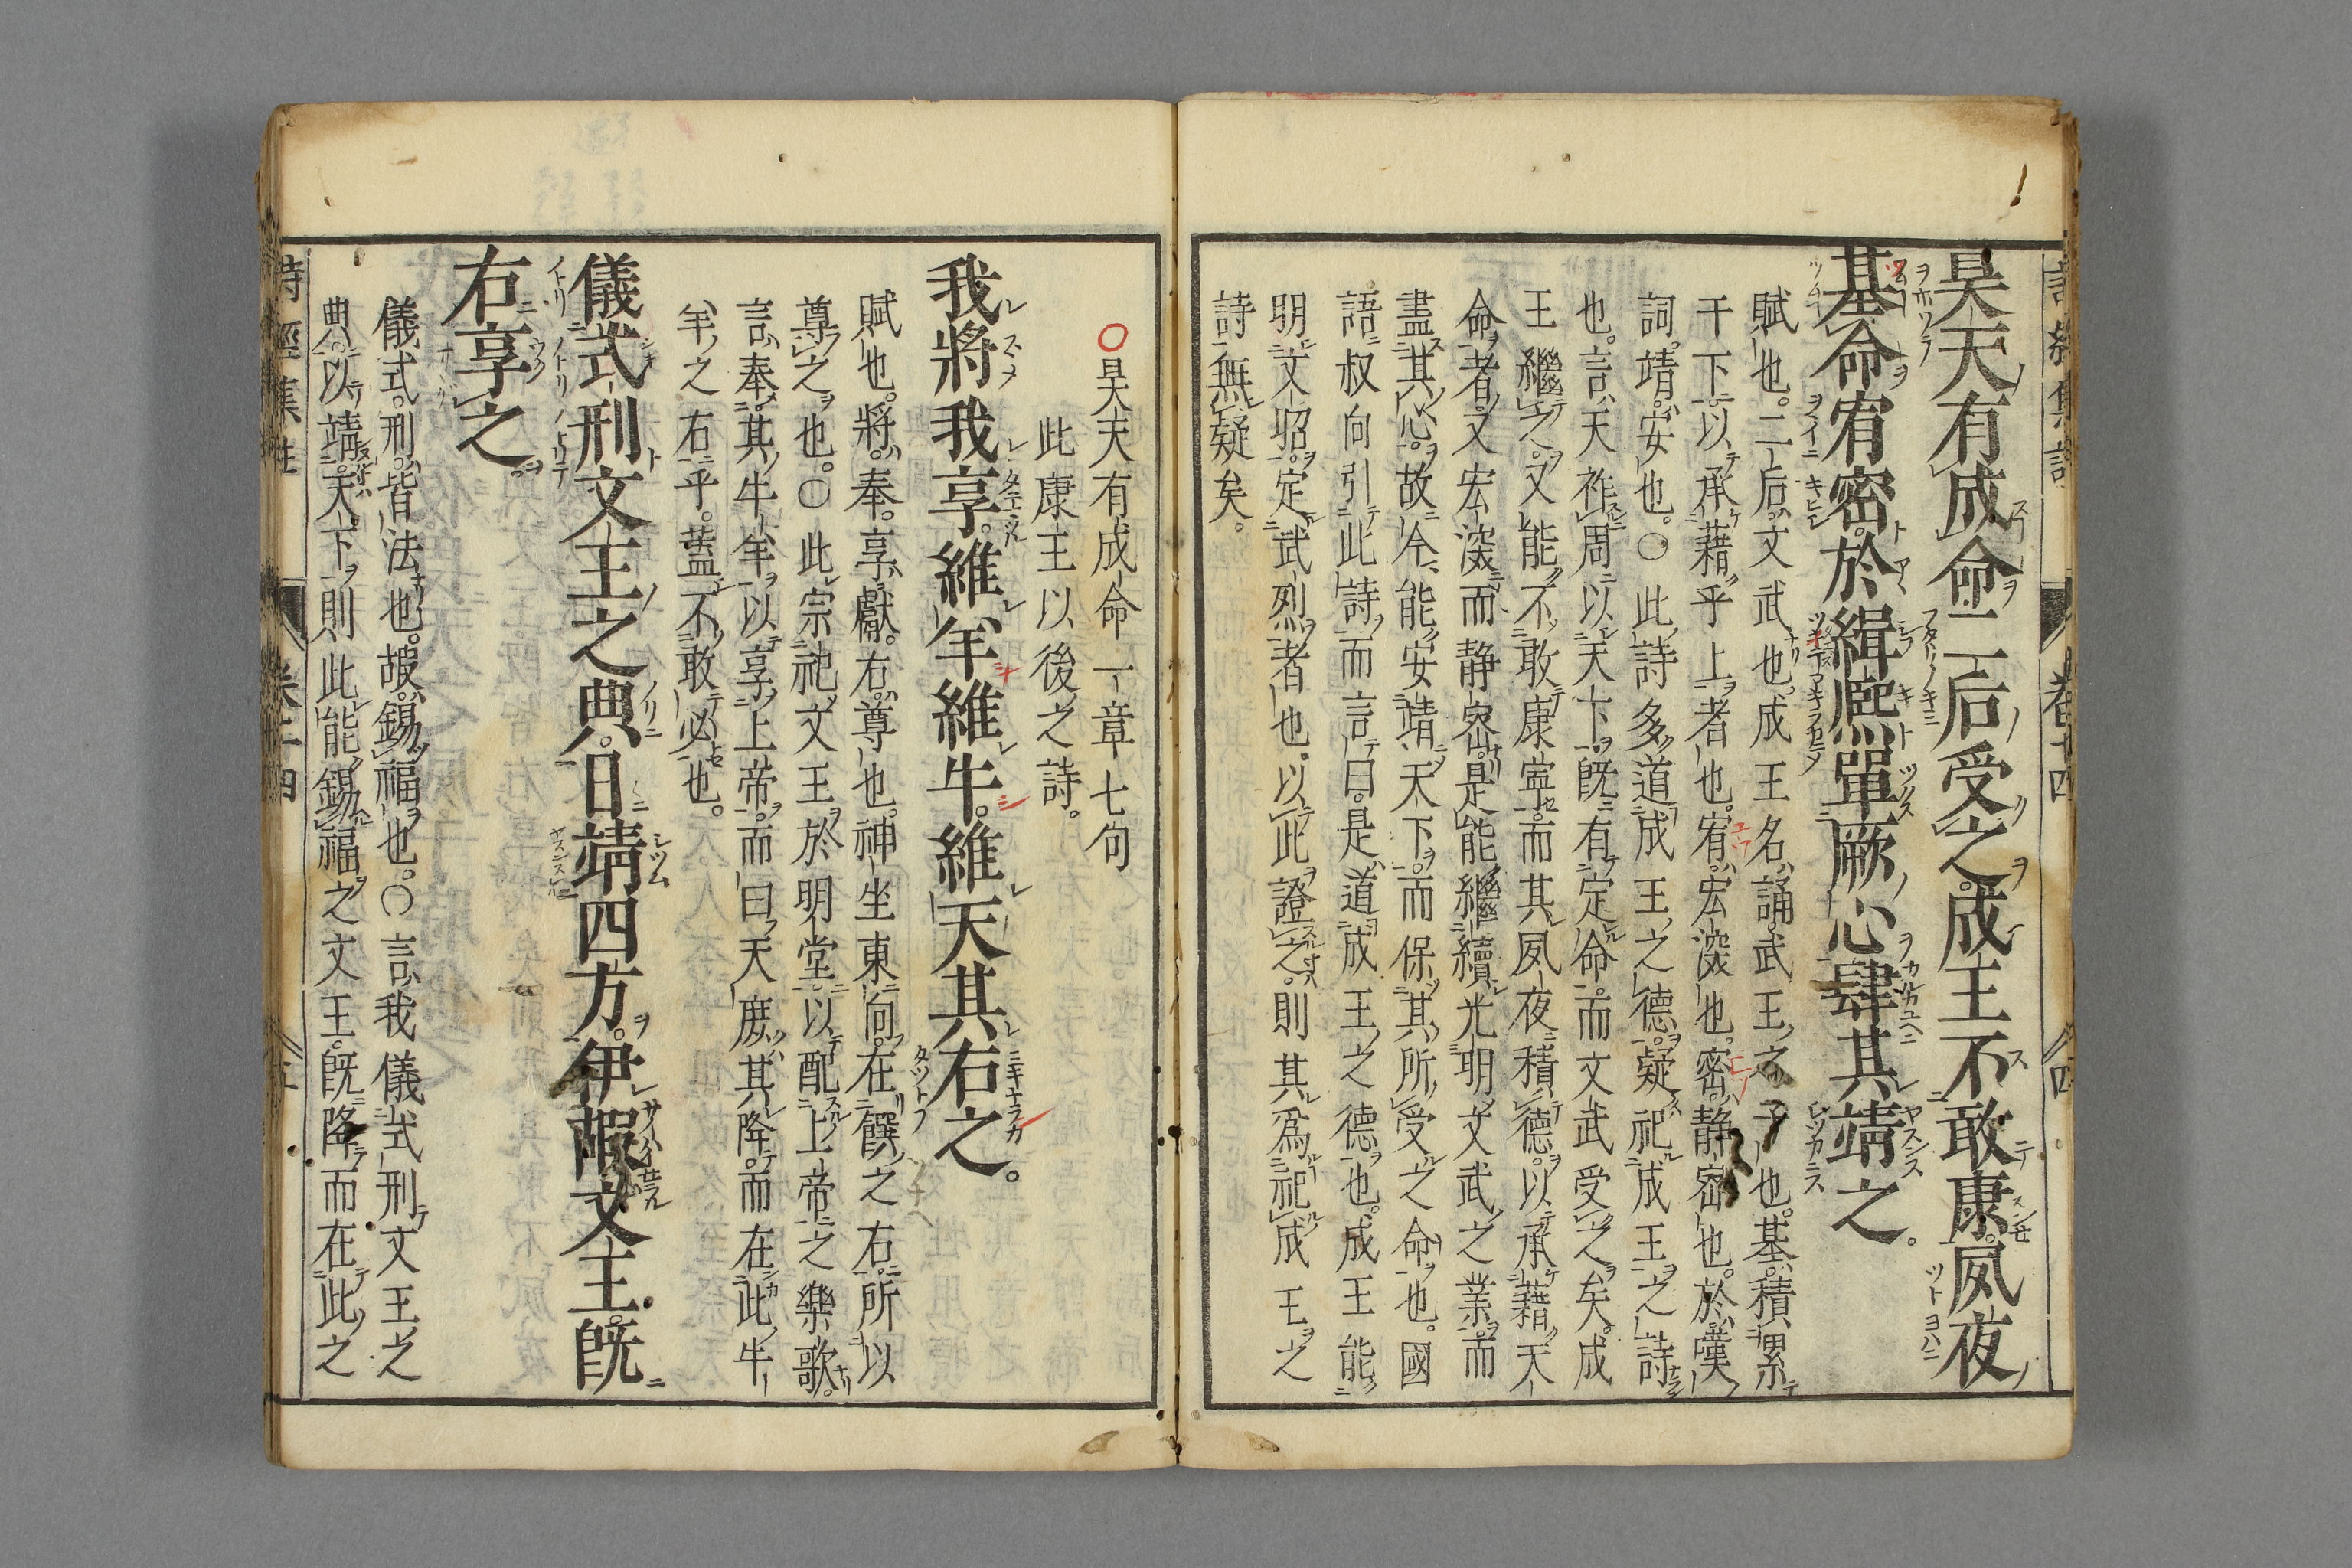 昊天有成命二后受之。成王不敢康。夙夜
基命宥密。於緝熙單厥心肆其靖之。
賦也。二后。文武也。成王名誦。武王之子也。基。積累
于下。以承藉乎上者也。宥。宏深也。密。静密也。於。嘆
詞。靖。安也。○此詩多道成王之德。疑祀成王之詩
也。言天祚周以天下。既有定命。而文武受之矣。成
王繼之。又能不敢康寧。而其夙夜積德。以承藉天
命者。又宏深而静密。是能繼續光明文武之業。而
盡其心。故今能安靖天下。而保其所受之命也。國
語叔向引此詩而言曰。是道成王之德也。成王能
明文昭。定武烈者也。以此證之。則其爲祀成王之
詩無疑矣。
○昊天有成命一章七句
此康王以後之詩。
我將我享。維羊維牛。維天其右之。
賦也。將。奉。享。獻。右。尊也。神坐東向。在饌之右。所以
尊之也。○此宗祀文王於明堂。以配上帝之樂歌。
言奉其牛羊以享上帝。而曰天庶其降。而在此牛
羊之右乎。蓋不敢必也。
儀式刑文王之典。日靖四方。伊嘏文王。既
右享之。
儀式。刑。皆法也。嘏。錫福也。○言我儀式刑文王之
典。以靖天下。則此能錫福之文王。既降而在此之
詩經集註 卷十四